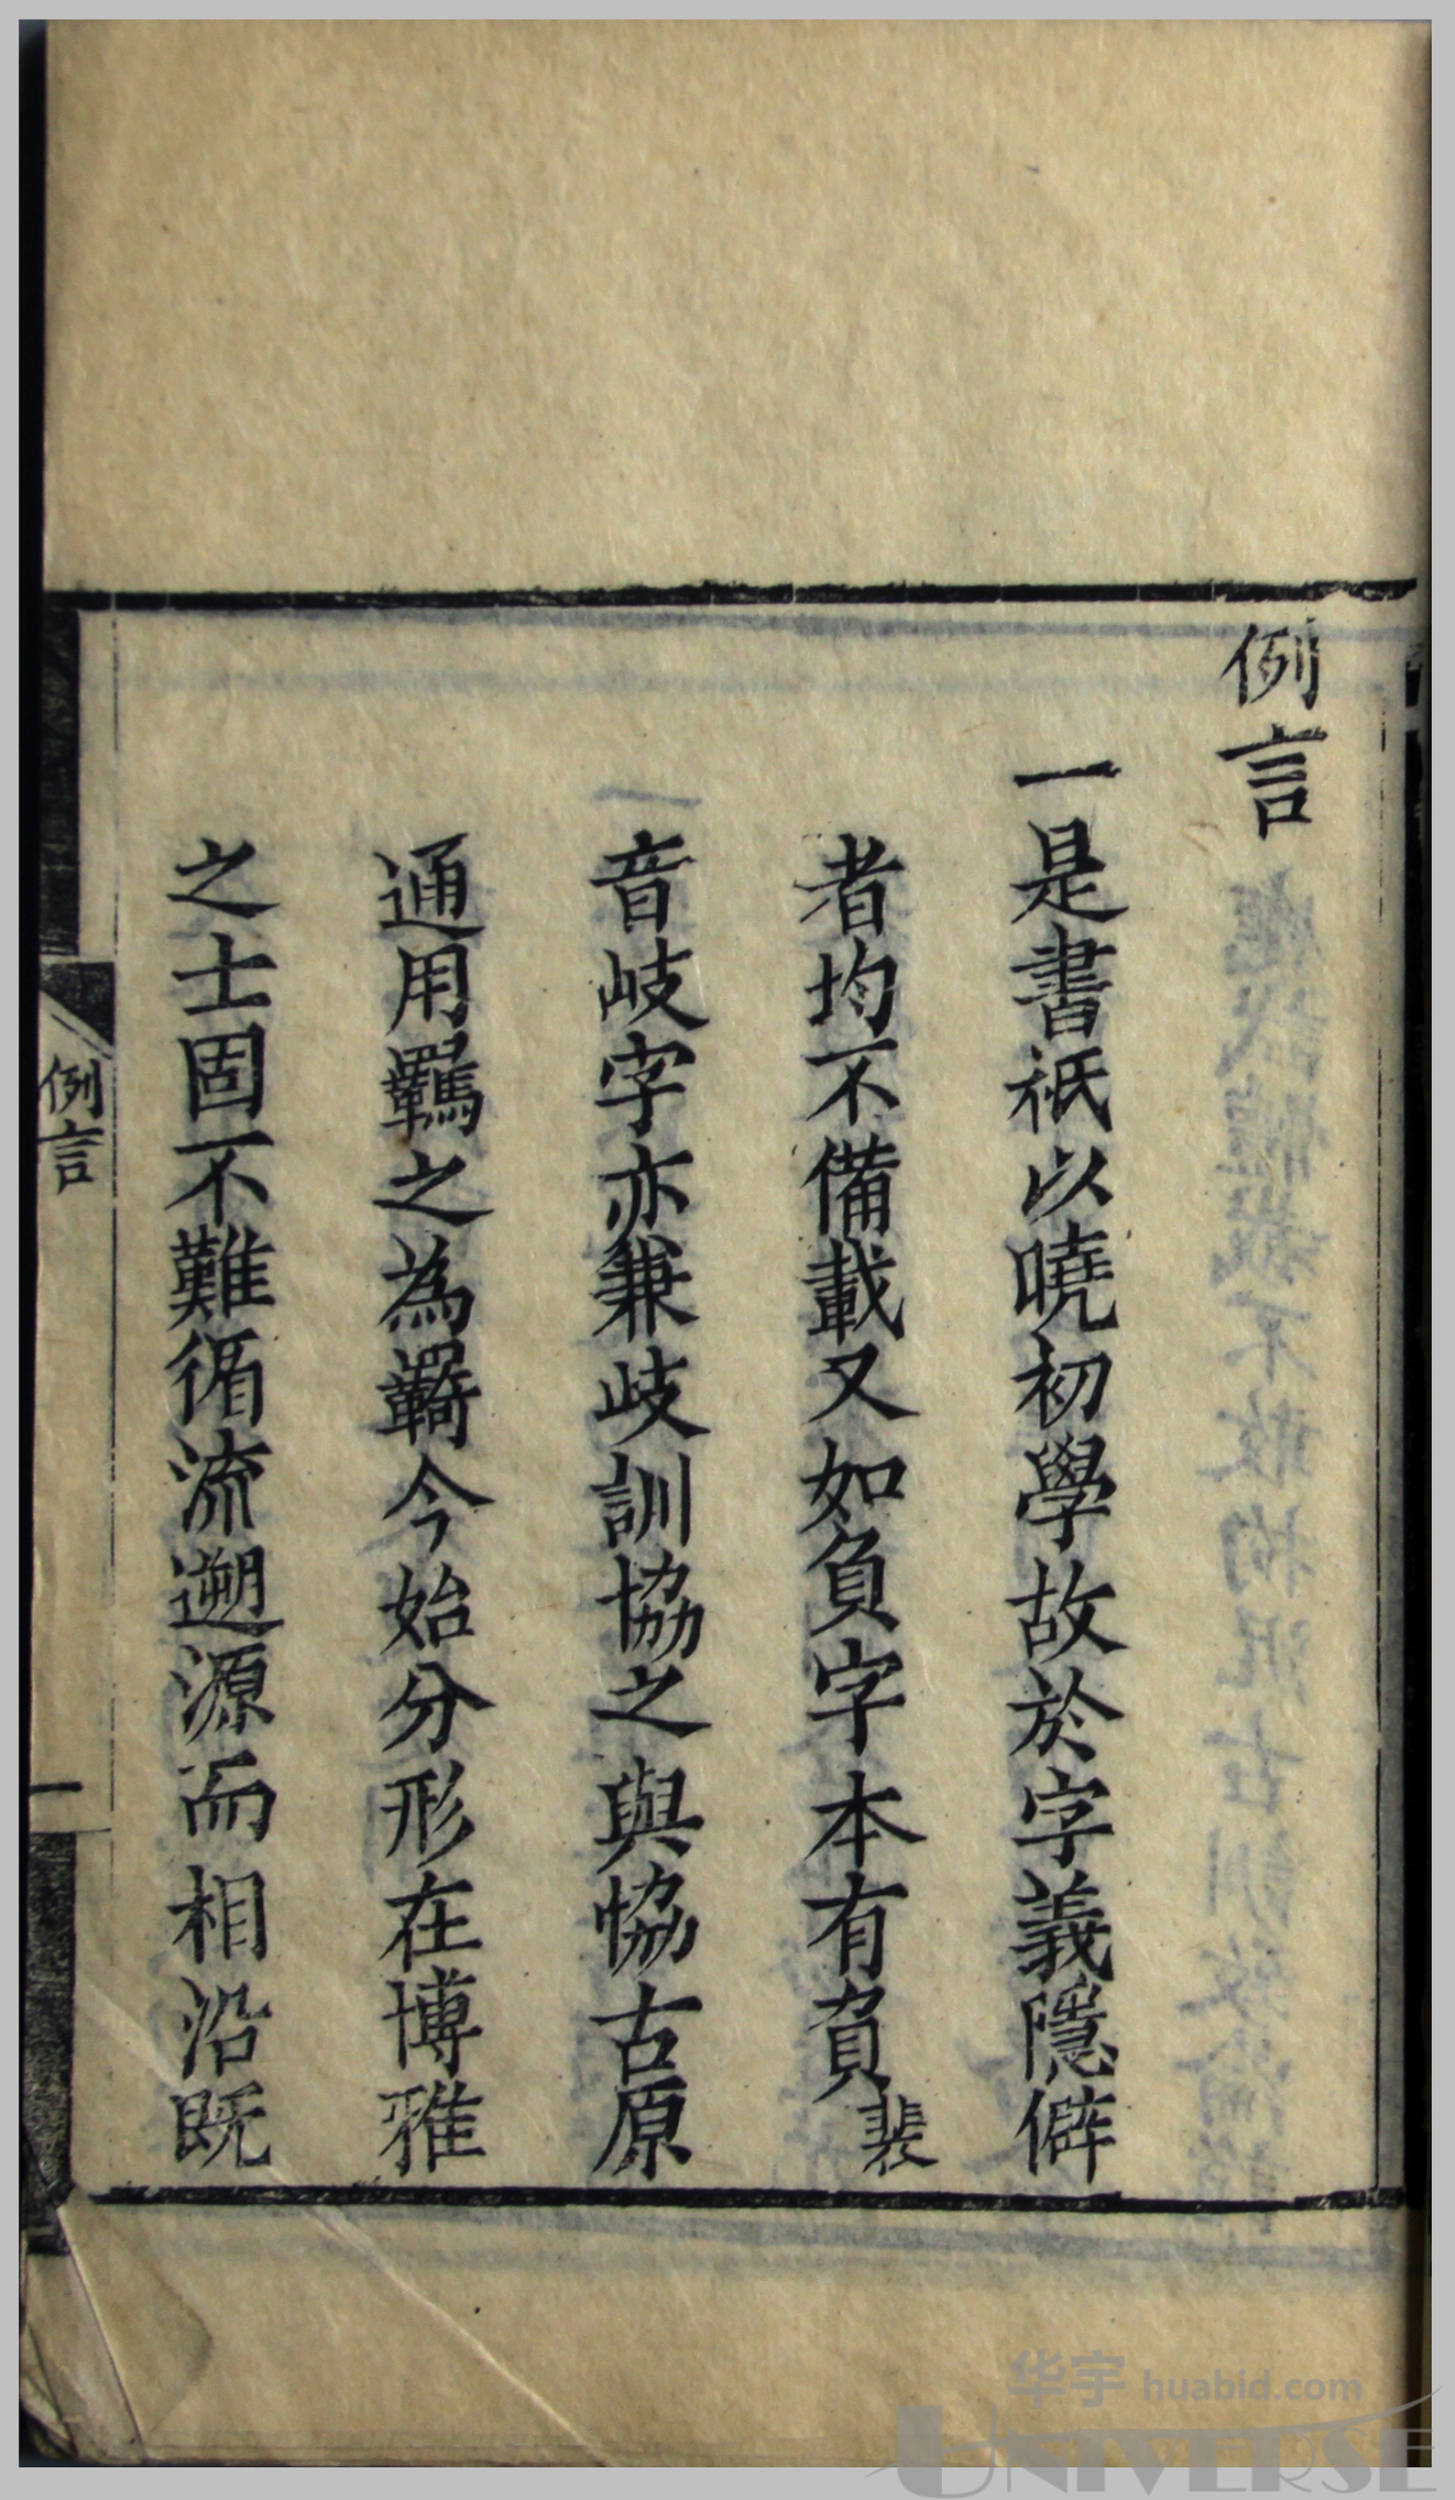 例言
一是書祇以曉初學故於字義隱僻
者均不備載又如負字本有負裴
音歧字亦兼歧訓協之與恊古原
通用羈之為羇今始分形在博雅
之士固不難循流遡源而相沿既
例言
一
华宇 huabid.com
UNIVERSE